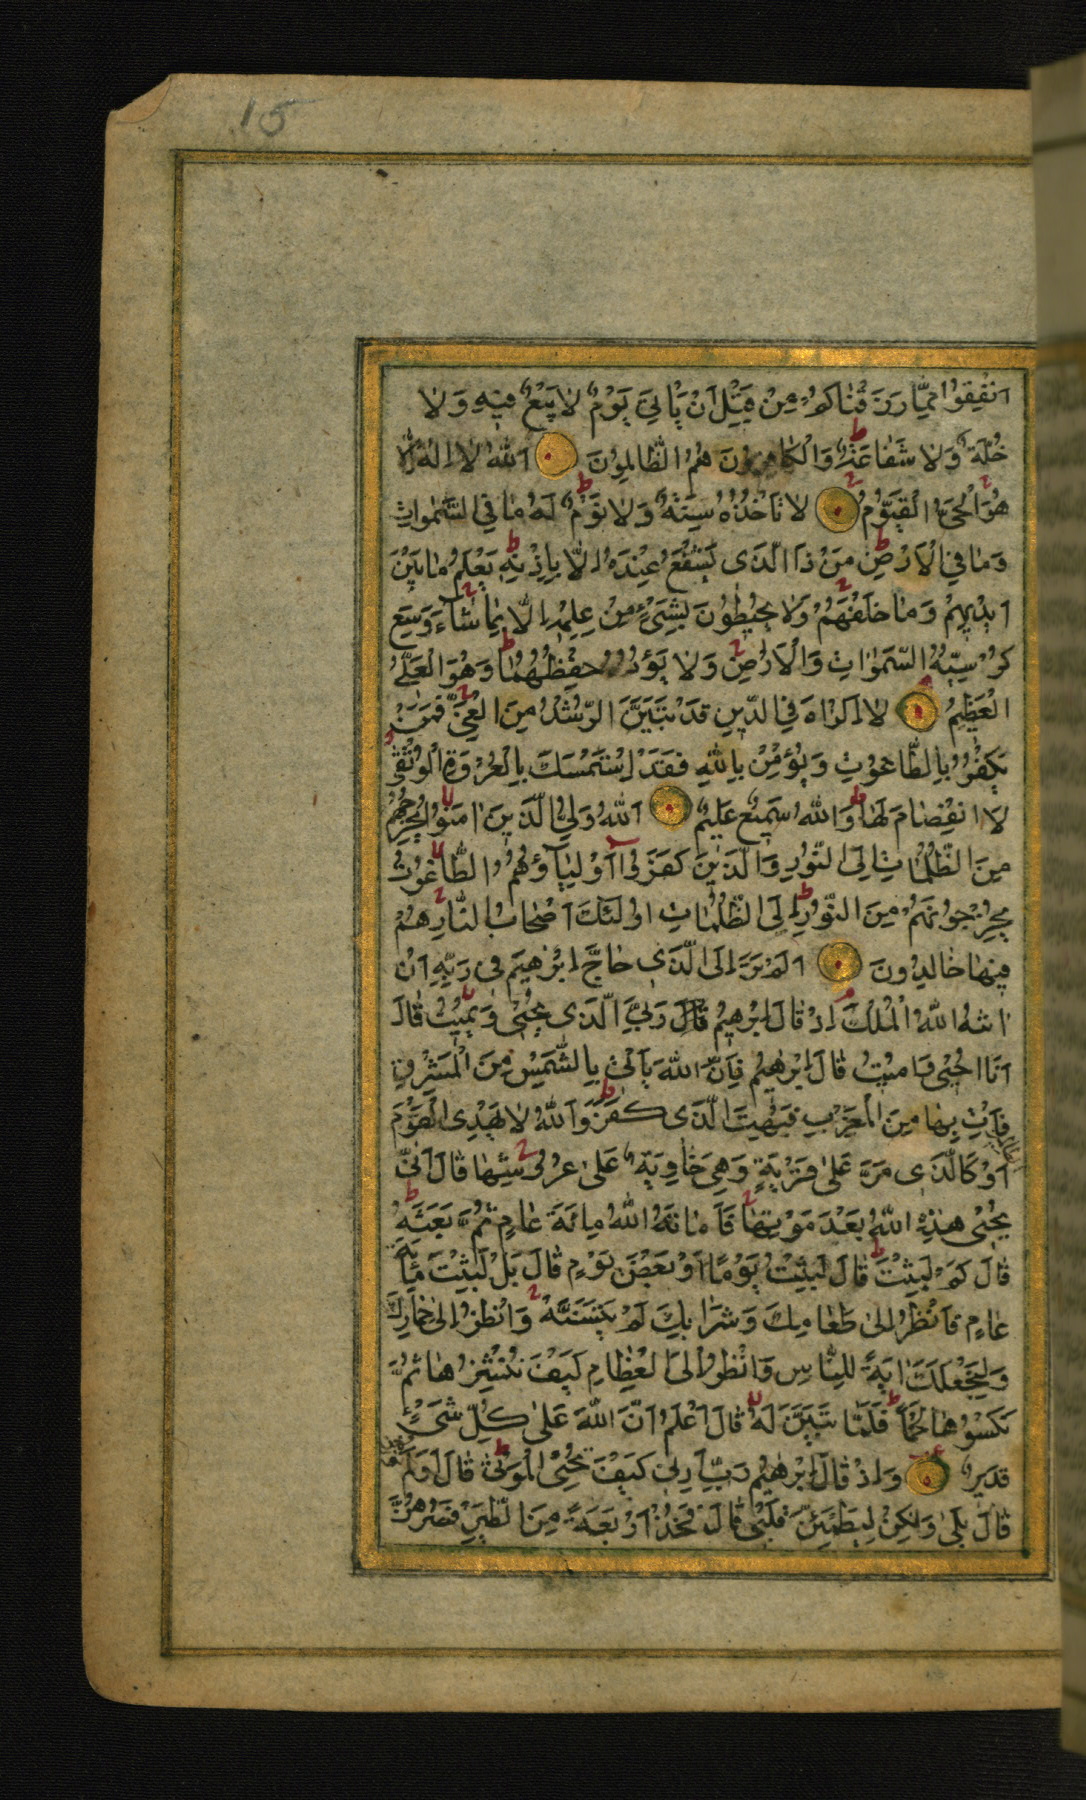 15
انفقوا مما رزقناكم من قبل ان ياتي يوم لا بيع فيه ولا
خلة ولا شفاعة والكافرون هم الظالمون الله لا اله الا
هو الحي القيوم لا تاخذه سنة ولا نوم له ما في السموات
وما في الارض من ذا الذي يشفع عنده الا باذنه يعلم ما بين
ايديهم وما خلفهم ولا يحيطون بشيء من علمه الا بما شاء وسع
كرسيه السموات والارض ولا يؤده حفظهما وهو العلي
العظيم لا اكراه في الدين قد تبين الرشد من الغي فمن
يكفر بالطاغوت ويؤمن بالله فقد استمسك بالعروة الوثقى
لا انفصام لها والله سميع عليم الله ولي الذين امنوا يخرجهم
من الظلمات الى النور والذين كفروا اولياؤهم الطاغوت
يخرجونهم من النور الى الظلمات اولئك اصحاب النار هم
فيها خالدون الم تر الى الذي حاج ابرهيم في ربه ان
اتيه الله الملك اذ قال ابرهيم ربي الذي يحيي ويميت قال
انا احيي واميت قال ابرهيم فان الله ياتي بالشمس من المشرق
فات بها من المغرب فبهت الذي كفر والله لا يهدي القوم
الظالمين
او كالذي مر على قرية وهي خاوية على عروشها قال انى
يحيي هذه الله بعد موتها فاماته الله مائة عام ثم بعثه
قال كم لبثت قال لبثت يوما او بعض يوم قال بل لبثت مائة
عام فانظر الى طعامك وشرابك لم يتسنه وانظر الى حمارك
ولنجعلك اية للناس وانظر الى العظام كيف ننشزها ثم
نكسوها لحما فلما تبين له قال اعلم ان الله على كل شيء
قدير واذ قال ابرهيم رب ارني كيف تحيي الموتى قال اولم
تؤمن
قال بلى ولكن ليطمئن قلبي قال فخذ اربعة من الطير فصرهن